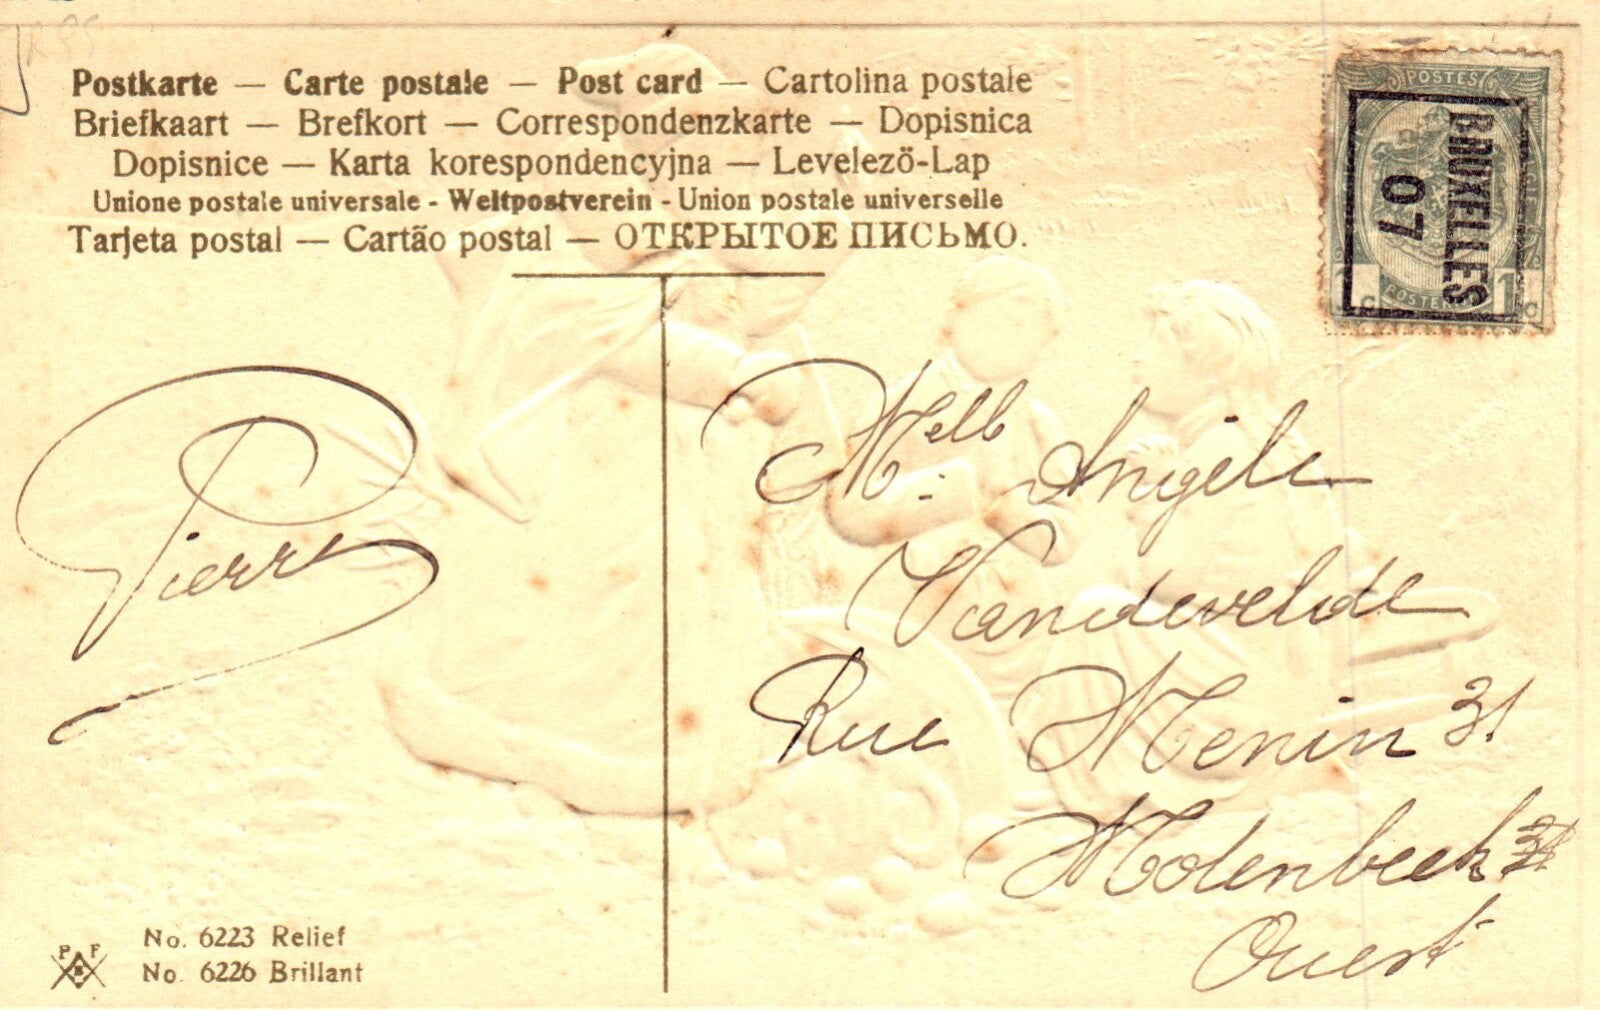 Postkarte — Carte postale — Post card — Cartolina postale
Briefkaart — Brefkort — Correspondenzkarte — Dopisnica
Dopisnice — Karta korespondencyjna — Levelező-Lap
Unione postale universale - Weltpostverein - Union postale universelle
Tarjeta postal — Cartão postal — ОТКРЫТОЕ ПИСЬМО.
POSTES
BRUXELLES
07
1 C 1 C
POSTERIJEN
Melle Angèle
Vandevelde
Rue Menin 31
Molenbeek
Ouest
Pierre
P F B
No. 6223 Relief
No. 6226 Brillant